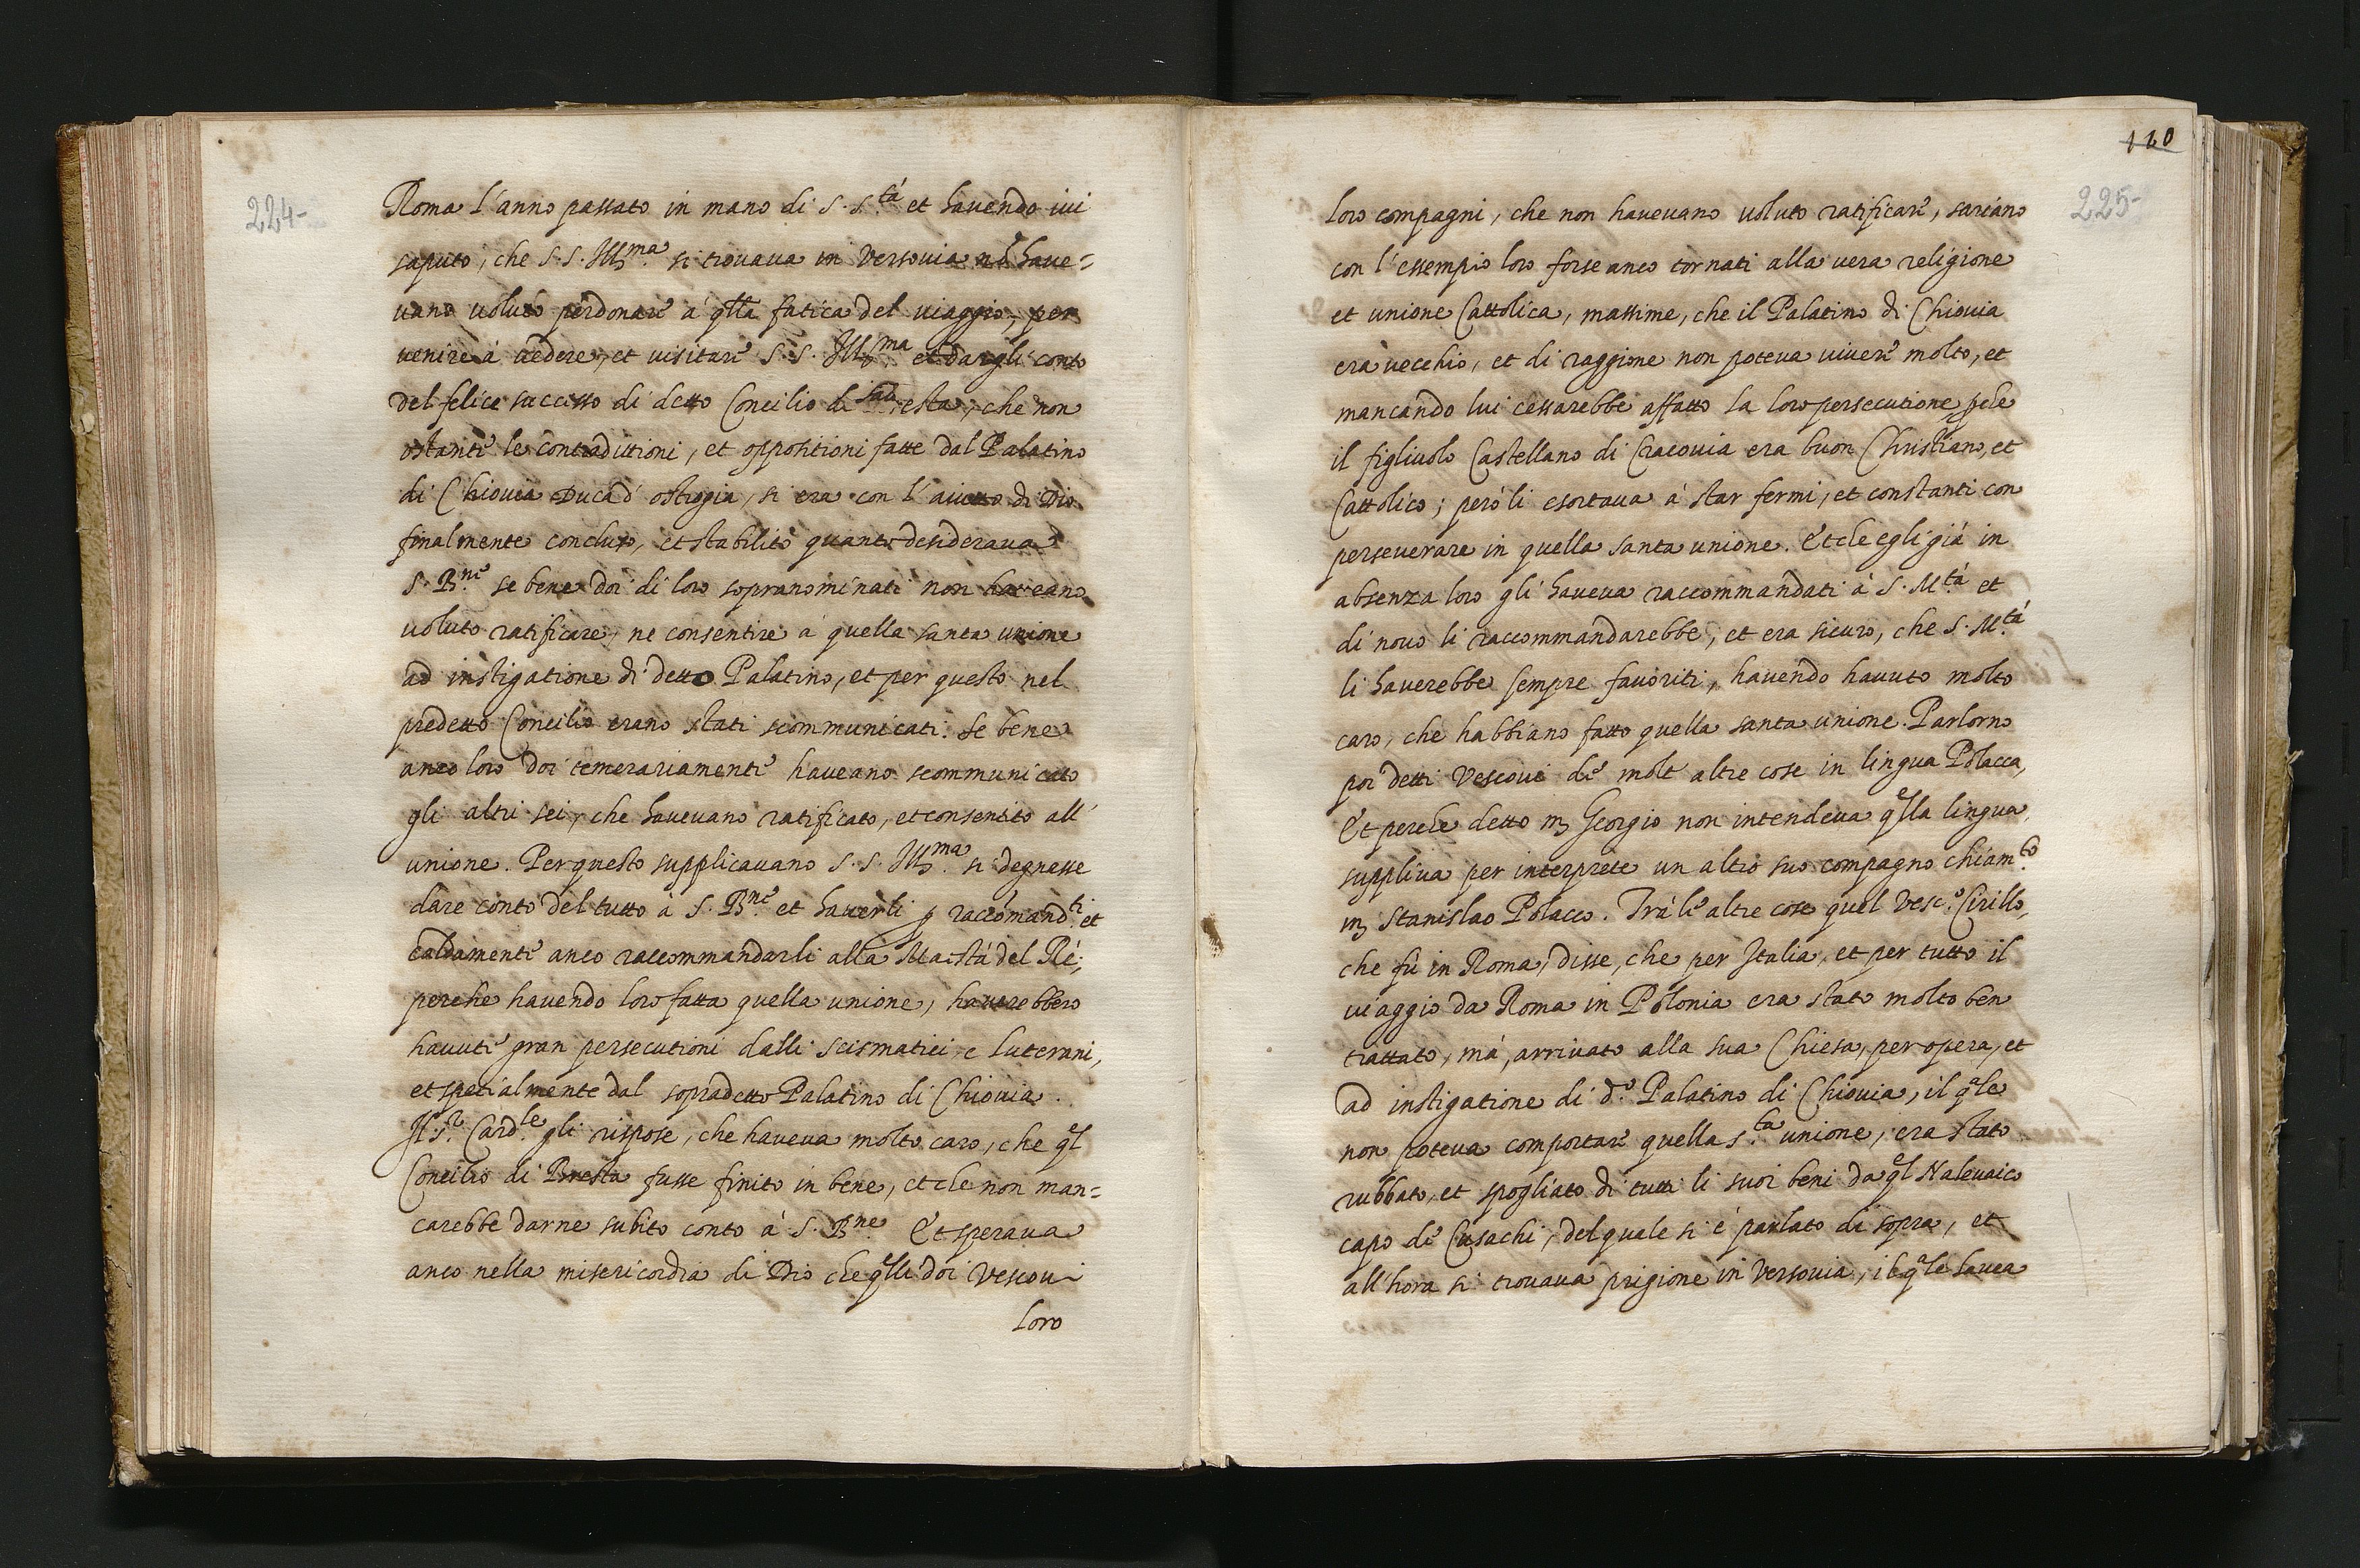 224-
Roma l'anno passato in mano di S. S.tà et havendo ivi
saputo, che S. S. Ill.ma si trovava in Versovia nõ have=
vano voluto perdonare à qlla fatica del viaggio, per
venire à vedere, et visitare S. S. Ill.ma et dargli conto
del felice successo di detto Concilio di esta, che non
ostante le contradittioni, et oppositioni fatte dal Palatino
di Chiovia Duca d' ostrogia, si era con l' aiutto di Dio
finalmente concluso, et stabilito quanto desiderava
S. B.ne se bene doi di loro sopranominati non haveano
voluto ratificare, ne consentire à quella santa unione
ad instigatione di detto Palatino, et per questo nel
predetto Concilio erano stati scommunicati. Se bene
anco loro doi temerariamente haveano scommunicato
gli altri sei, che havevano ratificato, et consentito all'
unione. Per questo supplicavano S. S. Ill.ma si degnasse
dare conto del tutto à S. B.ne et haverli p raccõmand.ti et
caldamente anco raccommandarli alla Maestà del Rè;
perche havendo loro fatta quella unione, haverebbero
havute gran persecutioni dalli scismatici e Luterani,
et spetialmente dal sopradetto Palatino di Chiovia.
Il S.r Card.le gli rispose, che haveva molto caro, che ql
Concilio di Bresta fusse finito in bene, et che non man=
carebbe darne subito conto à S. B.ne Et sperava
anco nella misericordia di Dio che qlli doi Vescovi
loro
120
225-
loro compagni, che non havevano voluto ratificare, sariano
con l'essempio loro forse anco tornati alla vera religione
et unione Cattolica, massime, che il Palatino di Chiovia
era vecchio, et di raggione non poteva vivere molto, et
mancando lui cessarebbe affatto la loro persecutione pche
il figliuolo Castellano di Cracovia era buon Christiano, et
Cattolico; però li esortava à star fermi, et constanti con
perseverare in quella santa unione. Et che egli già in
absenza loro gli haveva raccommandati à S. M.tà et
di novo li raccommandarebbe, et era sicuro, che S. M.tà
li haverebbe sempre favoriti, havendo havuto molto
caro, che habbiano fatto quella santa unione. Parlorno
poi detti Vescovi de molt altre cose in lingua Polacca,
Et perche detto m Georgio non intendeva qlla lingua,
suppliva per interprete un altro suo compagno chiam.to
m Stanislao Polacco. Trà le altre cose quel Vesc.o Cirillo,
che fù in Roma, disse, che per Italia, et per tutto il
viaggio da Roma in Polonia era stato molto ben
trattato, mà, arrivato alla sua Chiesa, per opera, et
ad instigatione di d.o Palatino di Chiovia, il qle
non poteva comportare quella s.ta unione, era stato
rubbato, et spogliato di tutti li suoi beni da ql Nalevaico
capo de Cusachi, del quale si è parlato di sopra, et
all'hora si trovava prigione in Versovia, il qle havea